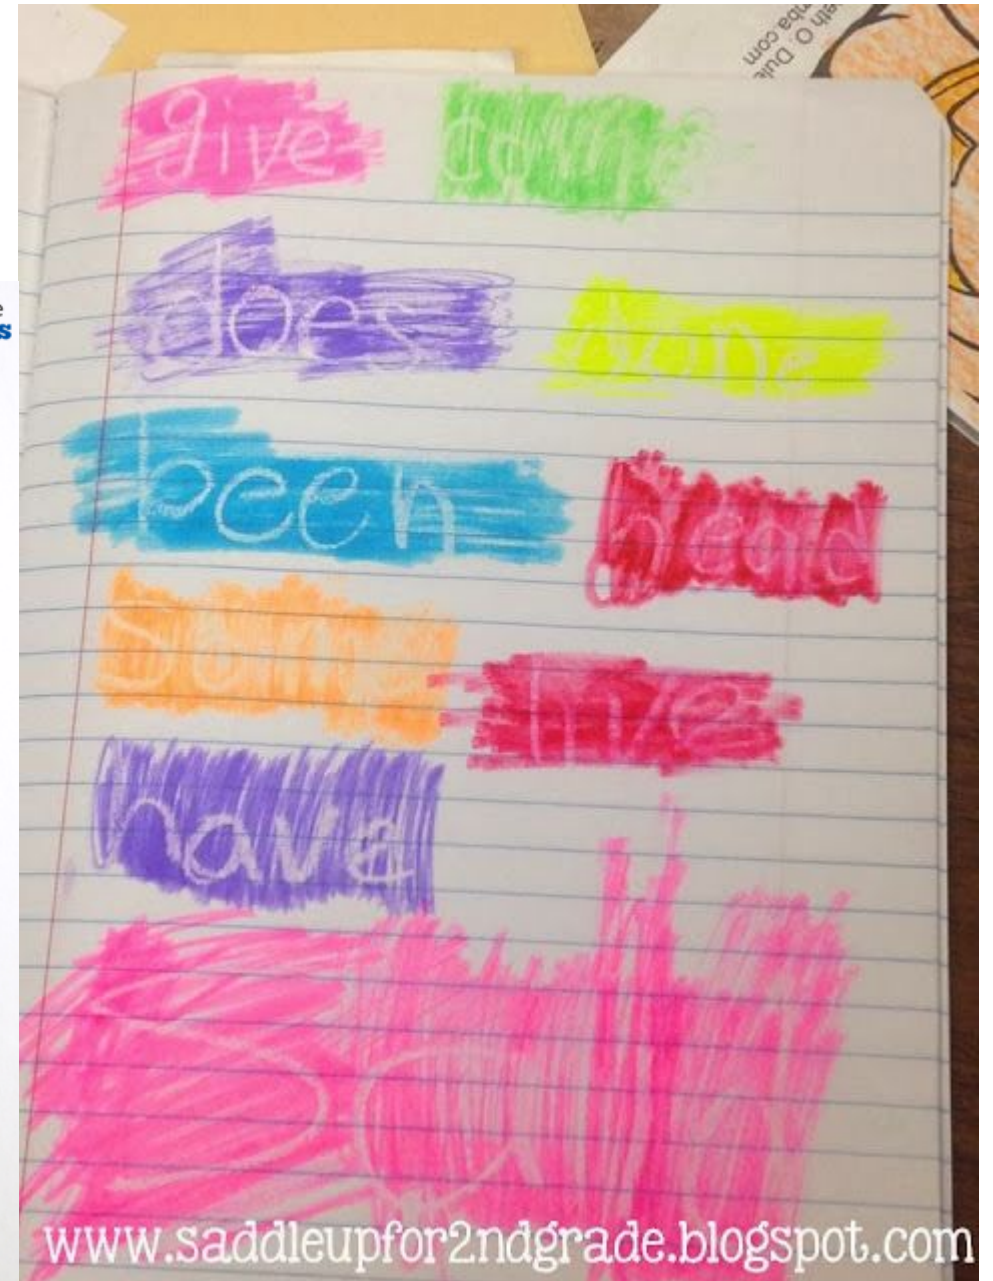 give come
does done
been head
some live
have
www.saddleupfor2ndgrade.blogspot.com